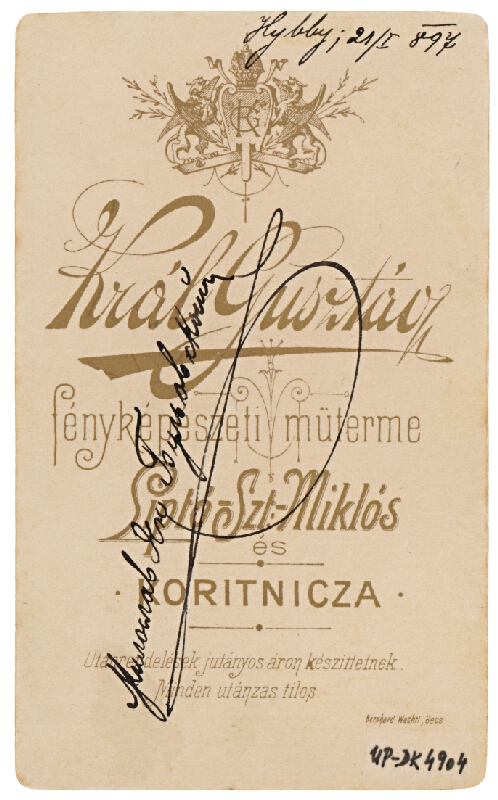 Hybby, 21/I 897
KG
Král Gusztáv
fényképeszeti műterme
Liptó-Szt.-Miklós
és
· KORITNICZA ·
Utánrendelések jutányos áron készíttetnek.
Minden utánzás tilos
Bernhard Wachtl, Bécs
UP-DK 4904